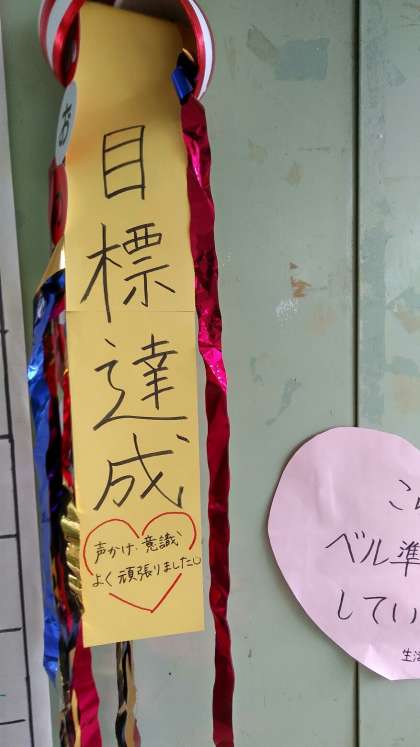 お
目標達成
声かけ・意識
よく頑張りました。
こ
ベル準
してい
生活